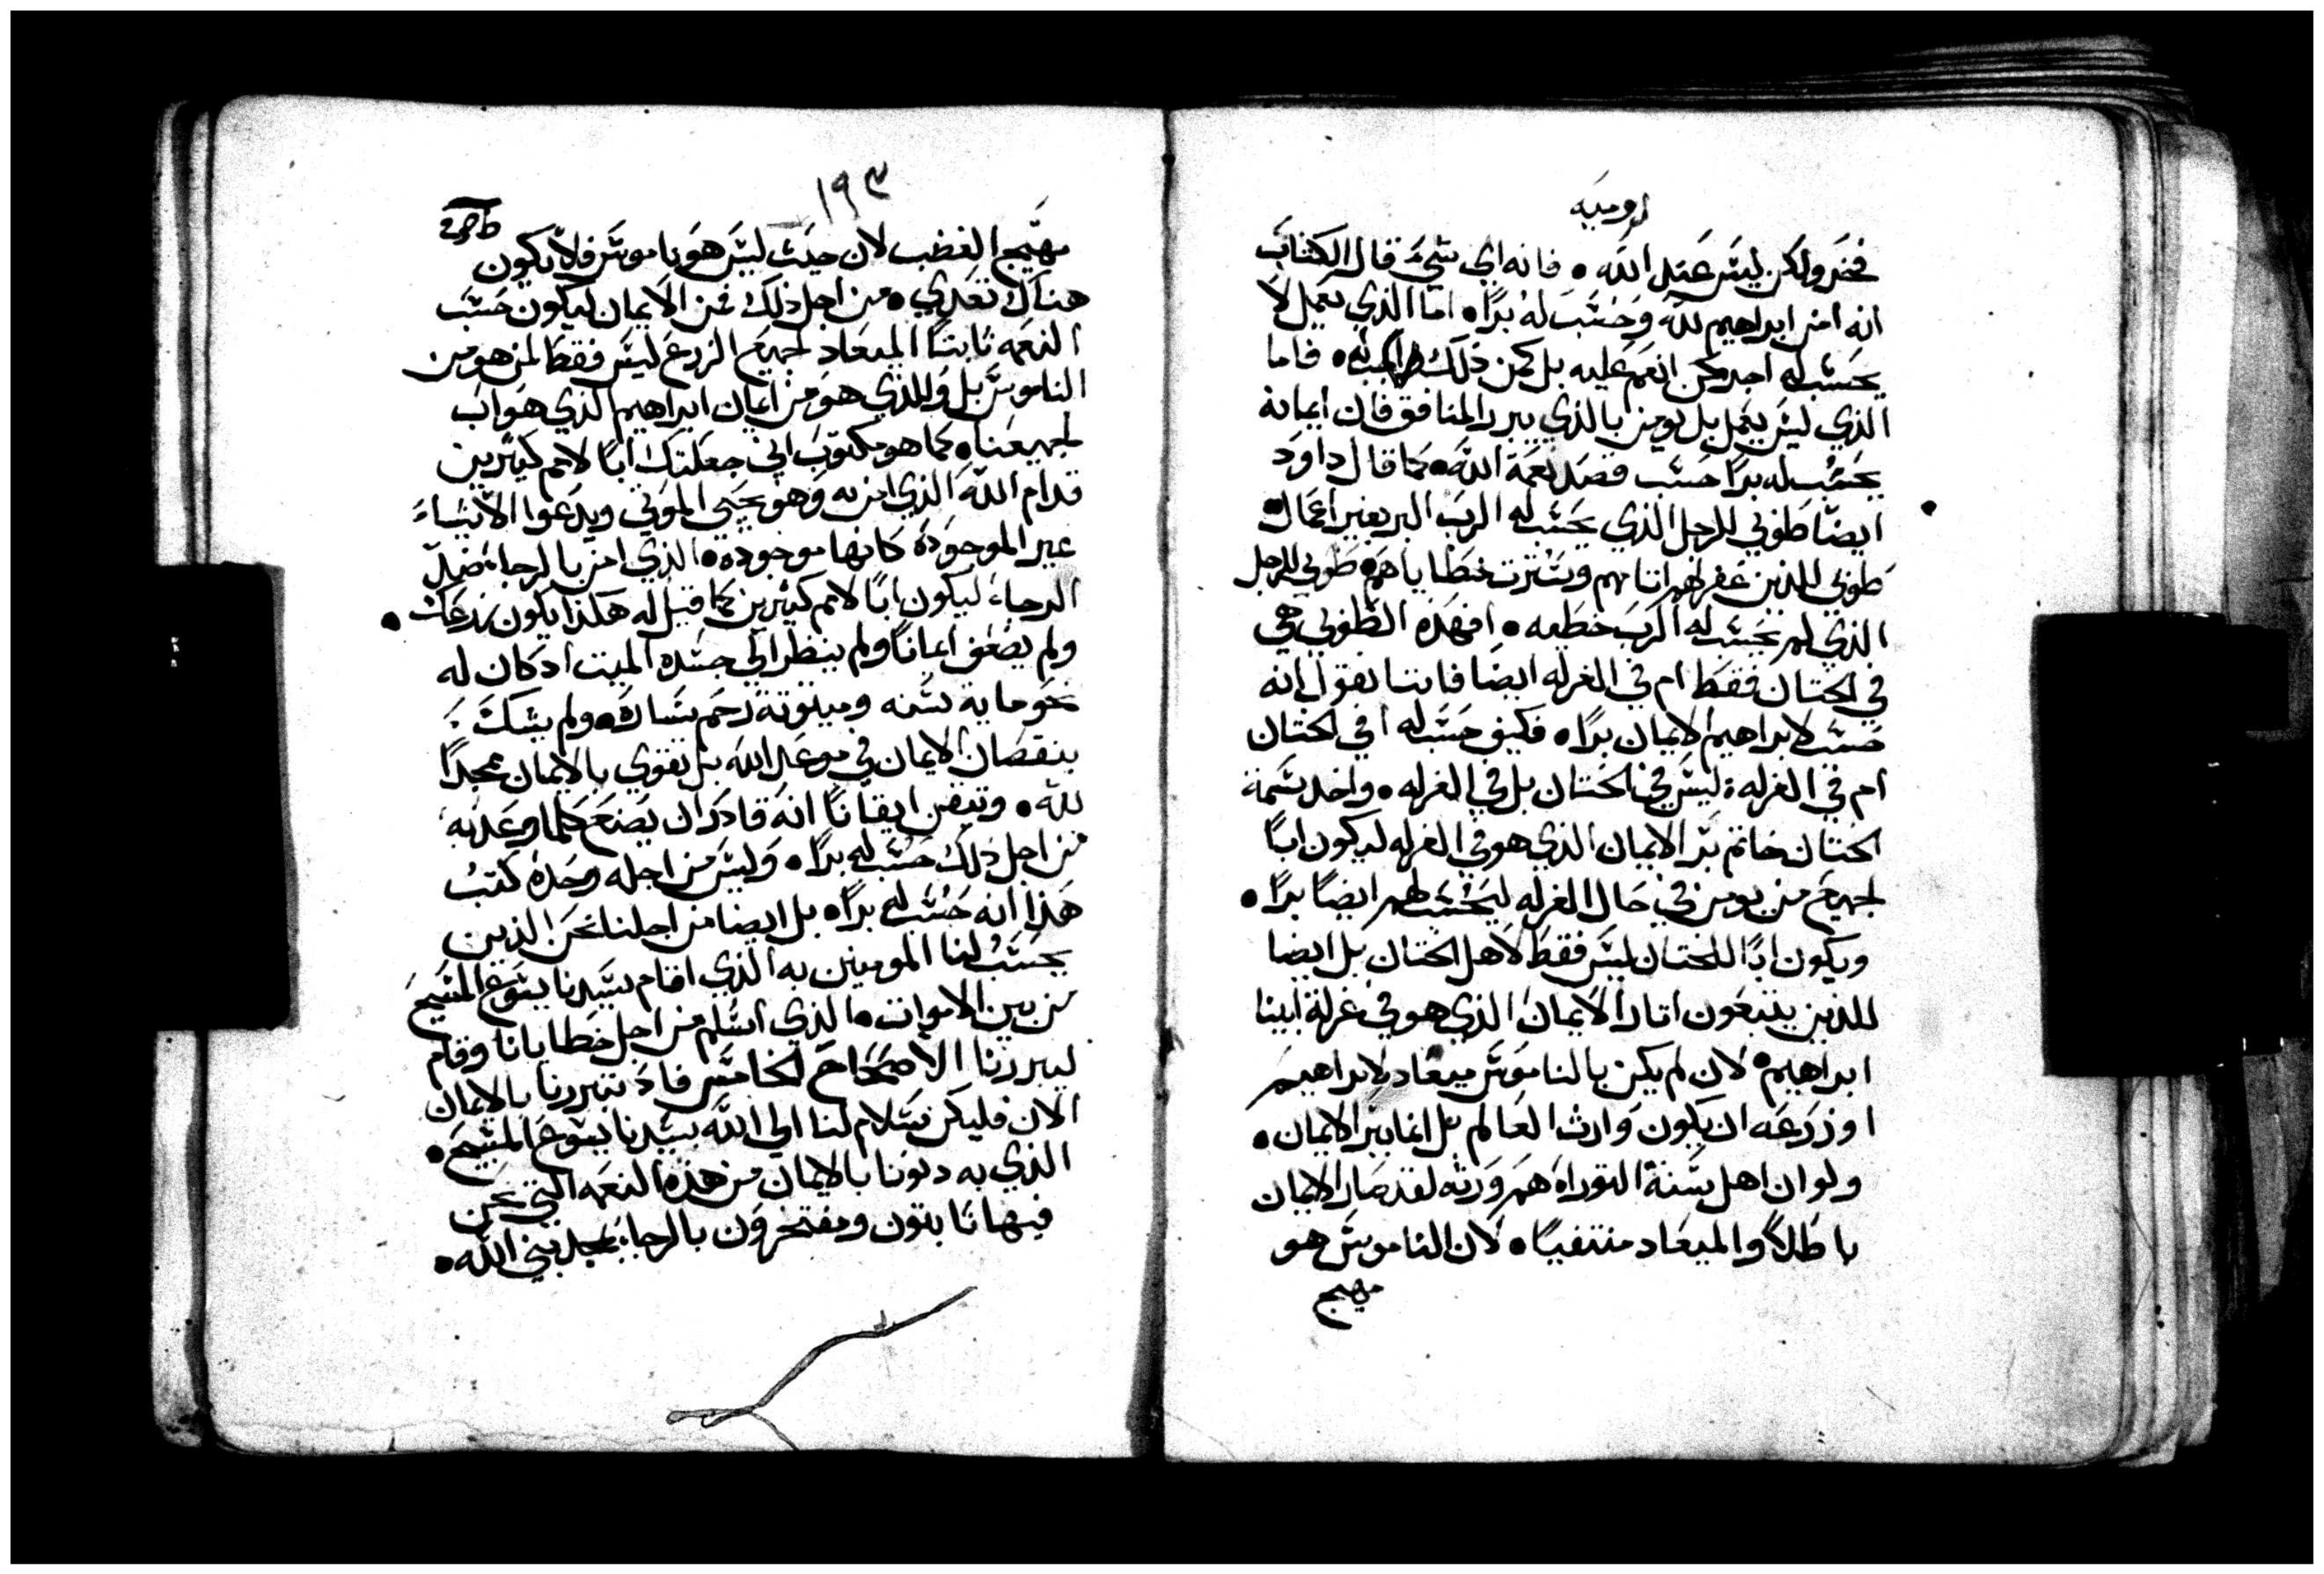 رومية
فخر ولكن ليس عند الله • فانه اي شيء قال الكتاب
انه امن ابراهيم لله وحسب له برًا • اما الذي يعمل لا
يحسب له اجر كمن انعم عليه بل كمن ذلك له • فاما
الذي ليس يعمل بل يومن بالذي يبرر المنافق فان ايمانه
يحسب له برًا حسب قصد نعمة الله • كما قال داود
ايضًا طوبي للرجل الذي يحسب له الرب البر بغير اعمال •
طوبي للذين غفر لهم اثامهم وسترت خطاياهم • طوبي للرجل
الذي لم يحسب له الرب خطيه • افهذه الطوبي هي
في الختان فقط ام في الغرله ايضًا فاننا نقول انه
حسب لابراهيم الايمان برًا • فكيف حسب له افي الختان
ام في الغرله ليس في الختان بل في الغرله • واخد سمة
الختان خاتم بر الايمان الذي هو في الغرله ليكون ابًا
لجميع من يومن في حال الغرله ليحسب لهم ايضًا برًا •
ويكون ابًا للختان ليس فقط لاهل الختان بل ايضا
للذين يتبعون اتار الايمان الذي هو في غرلة ابينا
ابراهيم • لان لم يكن بالناموس ميعاد لابراهيم
او زرعه ان يكون وارث العالم بل انما ببر الايمان •
ولو ان اهل سنة التوراه هم ورثه لقد صار الايمان
باطلًا والميعاد منتفيًا • لان الناموس هو
مهيج
١٩٣
مهيج الغضب لان حيث ليس هو ناموس فلا يكون
هناك تعدي • من اجل ذلك من الايمان ليكون حسب
النعمه ثابتًا الميعاد لجميع الزرع ليس فقط لمن هو من
الناموس بل وللذي هو من ايمان ابراهيم الذي هو اب
لجميعنا • كما هو مكتوب اني جعلتك ابًا لامم كثيرين
قدام الله الذي امن به وهو يحيي الموتي ويدعوا الاشياء
غير الموجودة كانها موجوده • الذي امن بالرجاء ضد
الرجاء ليكون ابًا لامم كثيرين كما قيل له هكذا يكون زرعك •
ولم يضعف ايمانًا ولم ينظر الي جسده الميت اد كان له
نحو مايه سنه وميتوتة رحم ساره • ولم يشك
بنقصان الايمان في موعد الله بل تقوي بالايمان ممجدًا
لله • وتيقن ايقانًا انه قادر ان يصنع كلما وعد به
من اجل ذلك حسب له برًا • وليس من اجله وحده كتب
هذا انه حسب له برًا • بل ايضا من اجلنا نحن الذين
يحسب لنا المومنين به الذي اقام سيدنا يسوع المسيح
من بين الاموات • الذي اسلم من اجل خطايانا وقام
ليبررنا الاصحاح الخامس فاد تبررنا بالايمان
الان فليكن سلام لنا الي الله بسيدنا يسوع المسيح •
الذي به دنونا بالايمان من هذه النعمه التي نحن
فيها ثابتون ومفتخرون بالرجاء بمجد بني الله •